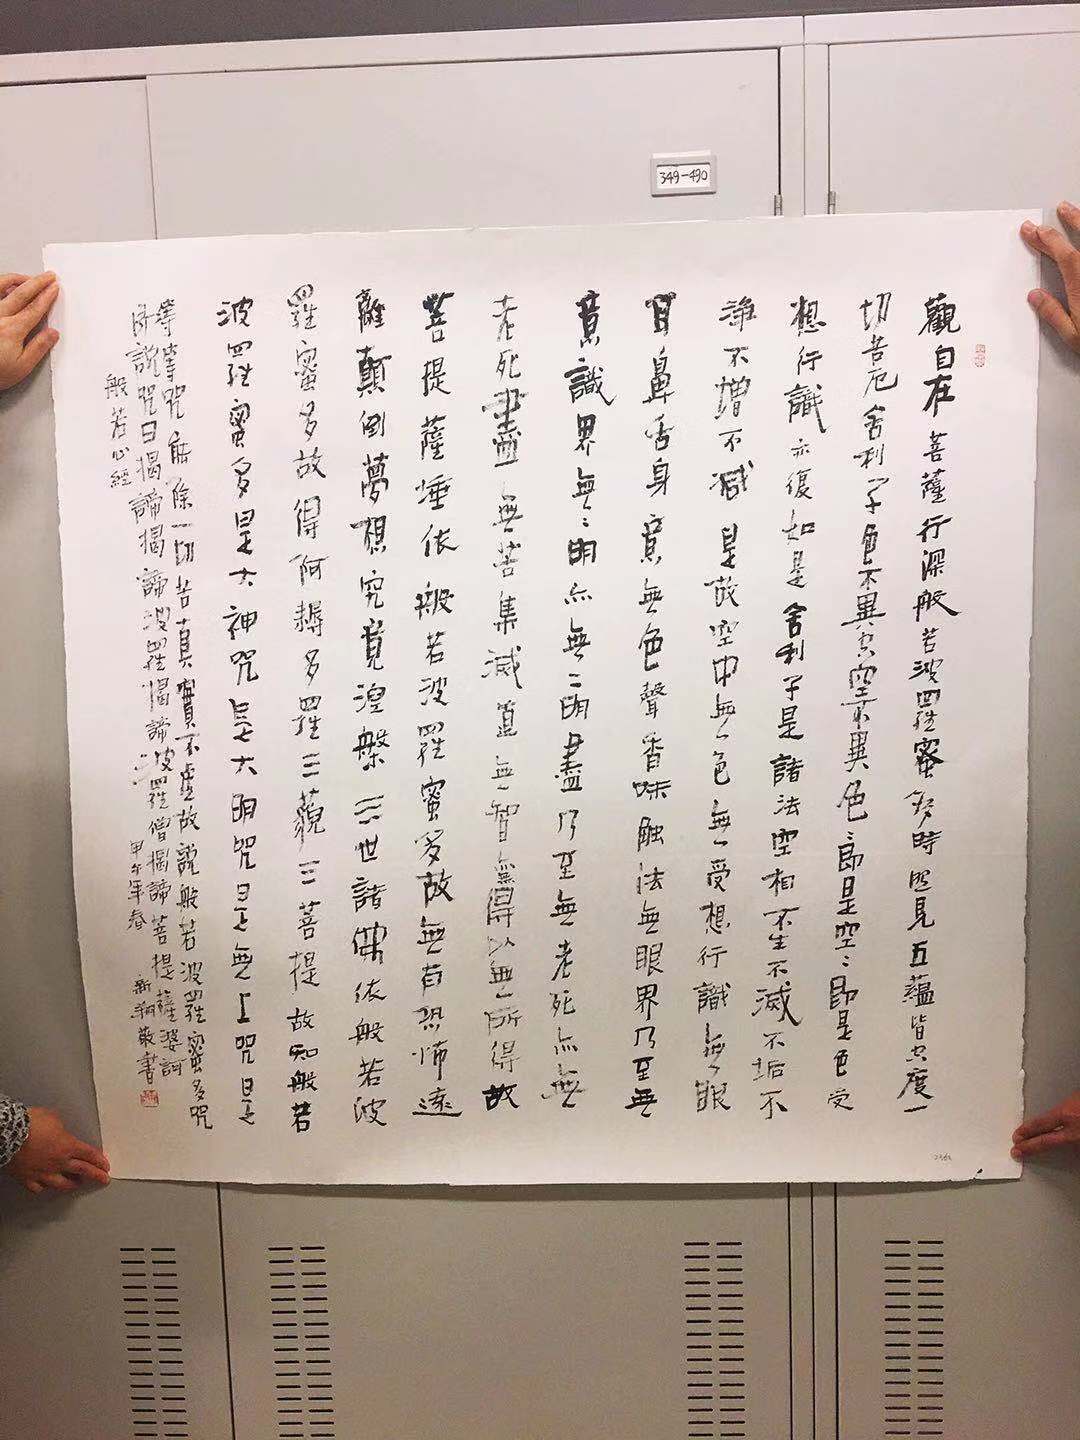 349-490
觀自在菩薩行深般若波羅蜜多時照見五蘊皆空度一
切苦厄舍利子色不異空空不異色色即是空空即是色受
想行識亦復如是舍利子是諸法空相不生不滅不垢不
淨不增不減是故空中無色無受想行識無眼
耳鼻舌身意無色聲香味触法無眼界乃至無
意識界無無明亦無無明盡乃至無老死亦無
老死盡無苦集滅道無智無得以無所得故
菩提薩埵依般若波羅蜜多故無有恐怖遠
離顛倒夢想究竟涅槃三世諸佛依般若波
羅蜜多故得阿耨多羅三藐三菩提故知般若
波羅蜜多是大神咒是大明咒是無上咒是
等等咒能除一切苦真實不虛故說般若波羅蜜多咒
所說咒曰揭諦揭諦波羅揭諦波羅僧揭諦菩提薩婆訶
般若心經
甲午年春
敬書